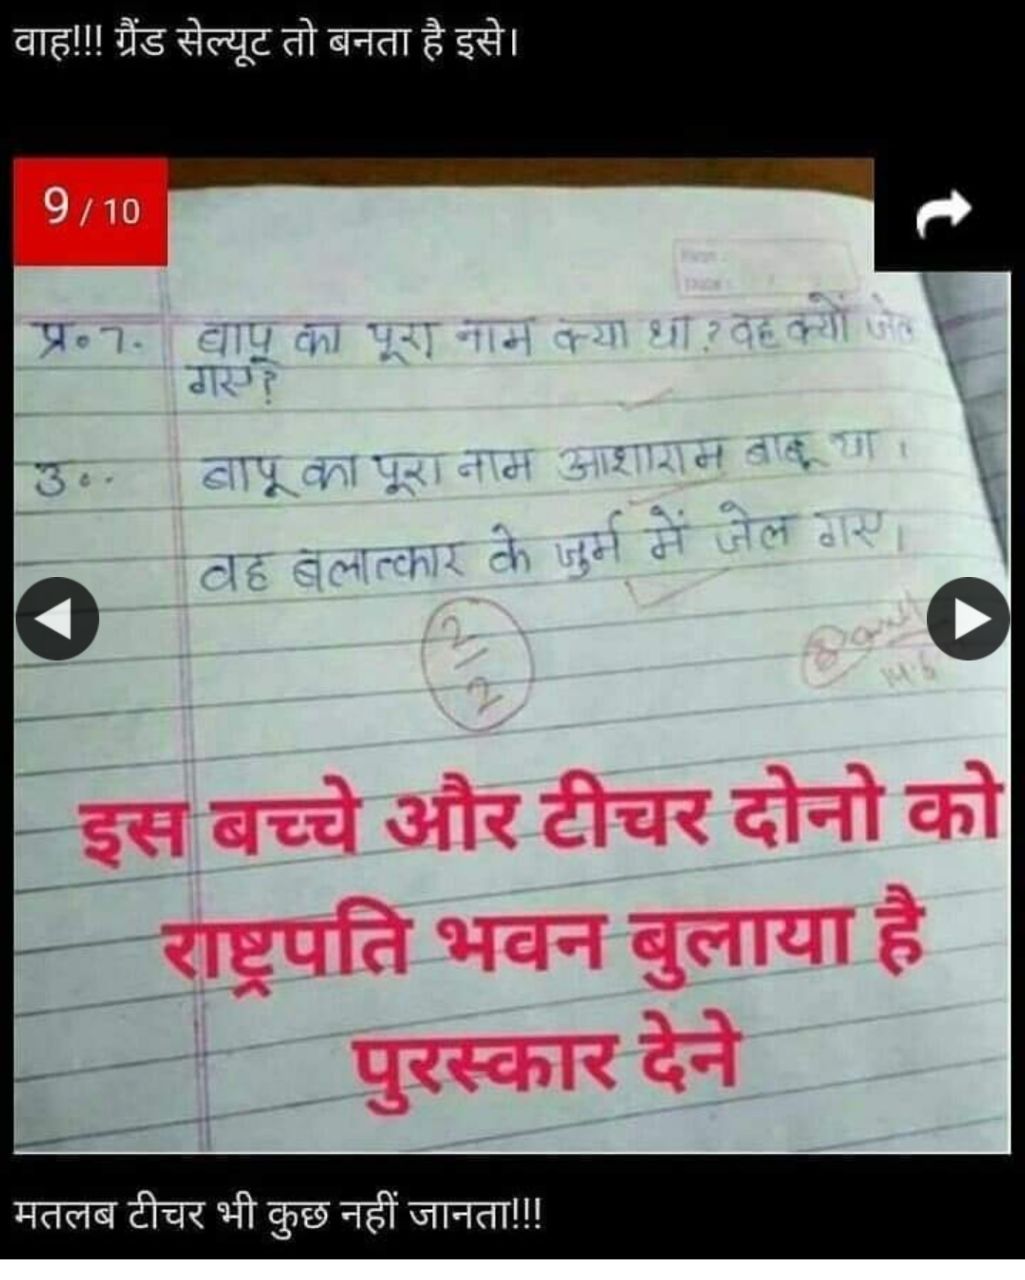 वाह!!! ग्रैंड सेल्यूट तो बनता है इसे।
9 / 10
प्र॰ 7. बापू का पूरा नाम क्या था? वह क्यों जेल
गए?
उ॰. बापू का पूरा नाम आशाराम बापू था।
वह बलात्कार के जुर्म में जेल गए।
2/2
इस बच्चे और टीचर दोनो को
राष्ट्रपति भवन बुलाया है
पुरस्कार देने
मतलब टीचर भी कुछ नहीं जानता!!!